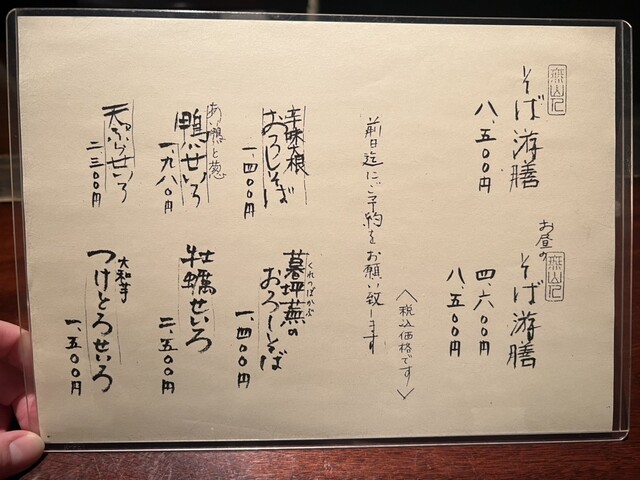 そば遊膳
八、五〇〇円
お昼の
そば遊膳
四、六〇〇円
八、五〇〇円
前日迄にご予約をお願い致します
〈税込価格です〉
辛味大根
おろしそば
一、四〇〇円
暮坪蕪の
くれつぼかぶ
おろしそば
一、四〇〇円
あい鴨と葱
鴨せいろ
一、九八〇円
牡蠣せいろ
二、五〇〇円
天ぷらせいろ
二、三〇〇円
大和芋
つけとろせいろ
一、五〇〇円